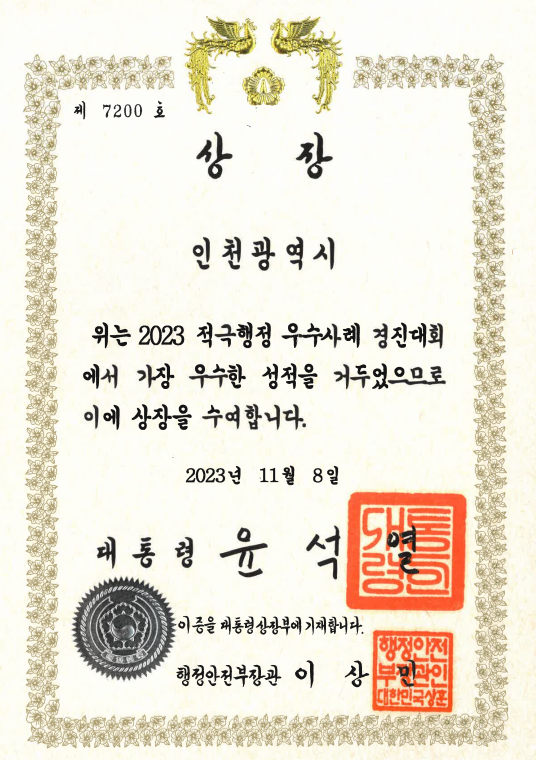 제 7200 호
상 장
인천광역시
위는 2023 적극행정 우수사례 경진대회
에서 가장 우수한 성적을 거두었으므로
이에 상장을 수여합니다.
2023년 11월 8일
대통령 윤 석 열
대통
령인
이 증을 대통령상장부에 기재합니다.
행정안전부장관 이 상 민
행정안전
부장관인
대한민국상훈